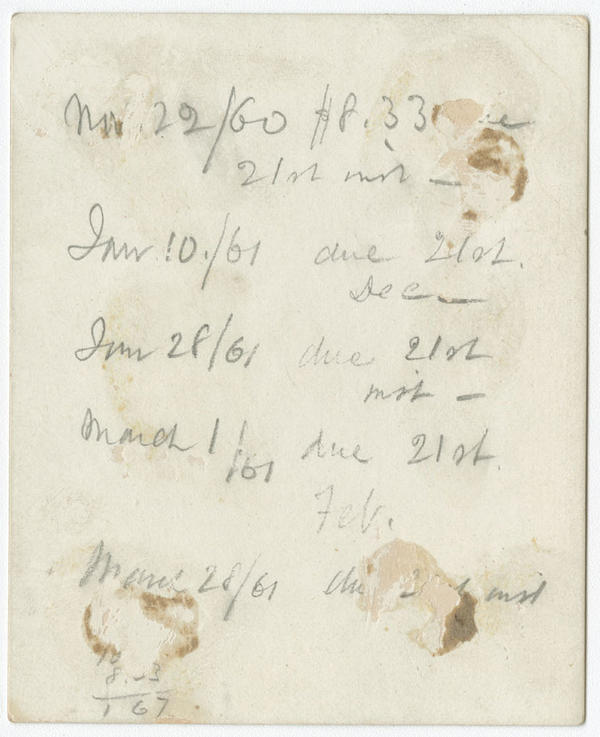 Nov 22/60 $8.33
21st inst —
Jan 10./61 due 21st.
Dec —
Jan 28/61 due 21st
inst —
March 1/61 due 21st.
Feb.
March 28/61 due 21st inst
10
8.33
1 67